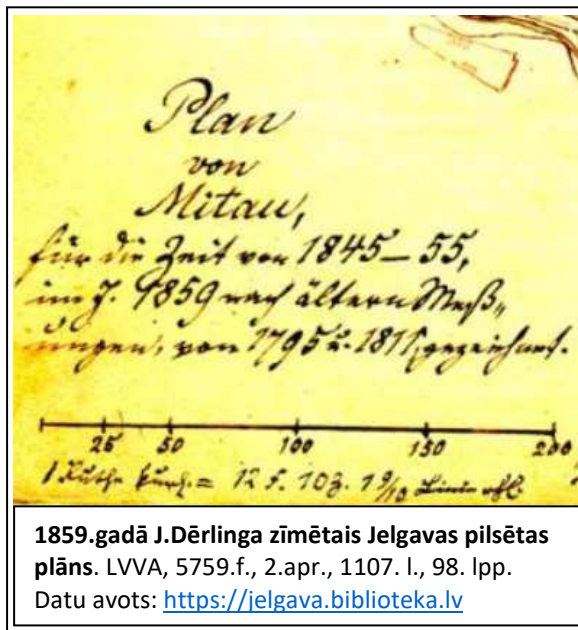 Plan
von
Mitau,
für die Zeit von 1845–55,
im J. 1859 nach ältern Meß„
ungen, von 1795 u. 1811, gezeichnet.
25 50 100 150 200
1 Ruthe kurh. = 12 F. 10 Z. 1 9/10 Linie rhl.
1859.gadā J.Dērlinga zīmētais Jelgavas pilsētas
plāns. LVVA, 5759.f., 2.apr., 1107. l., 98. lpp.
Datu avots: https://jelgava.biblioteka.lv